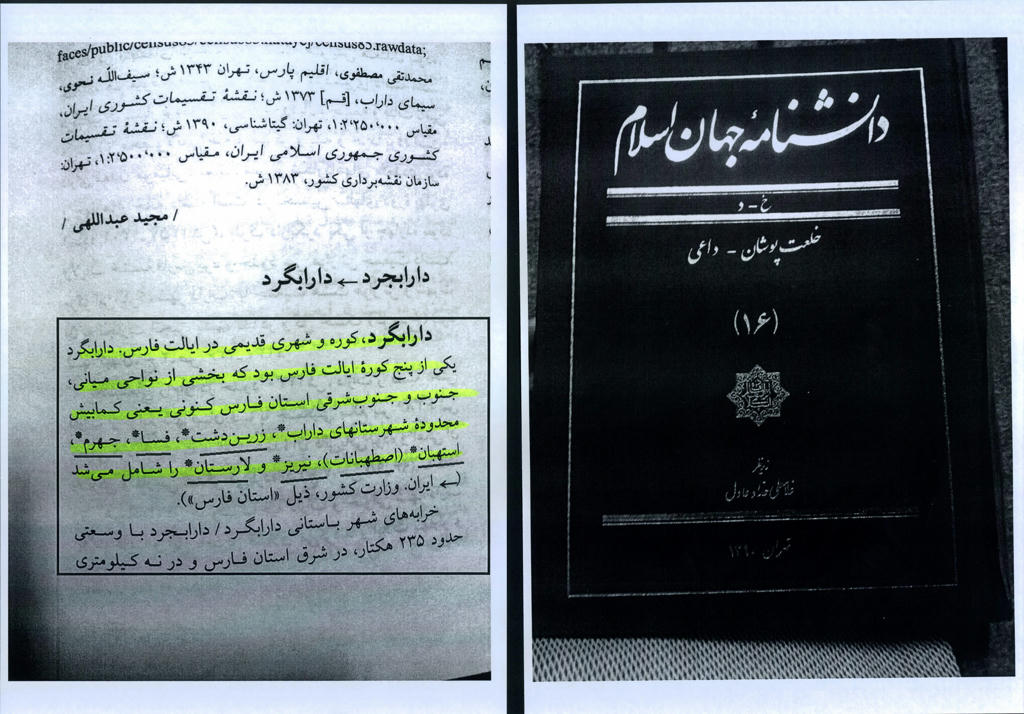 faces/public/census85/census85.natayej/census85.rawdata;
محمدتقی مصطفوی، اقلیم پارس، تهران ۱۳۴۳ ش؛ سیف‌اللّه نحوی،
سیمای داراب، [قم] ۱۳۷۳ ش؛ نقشهٔ تقسیمات کشوری ایران،
مقیاس ۱:۲٬۲۵۰٬۰۰۰، تهران: گیتاشناسی، ۱۳۹۰ ش؛ نقشهٔ تقسیمات
کشوری جمهوری اسلامی ایران، مقیاس ۱:۲٬۵۰۰٬۰۰۰، تهران:
سازمان نقشه‌برداری کشور، ۱۳۸۳ ش.
/ مجید عبداللهی /
دارابجرد ← دارابگرد
دارابگرد، کوره و شهری قدیمی در ایالت فارس. دارابگرد
یکی از پنج کورهٔ ایالت فارس بود که بخشی از نواحی میانی،
جنوب و جنوب‌شرقی استان فارس کنونی یعنی کمابیش
محدودهٔ شهرستانهای داراب*، زرین‌دشت*، فسا*، جهرم*،
استهبان* (اصطهبانات)، نیریز* و لارستان* را شامل می‌شد
(← ایران. وزارت کشور، ذیل «استان فارس»).
خرابه‌های شهر باستانی دارابگرد / دارابجرد با وسعتی
حدود ۲۳۵ هکتار، در شرق استان فارس و در نه کیلومتری
دانشنامهٔ جهان اسلام
خ - د
خلعت پوشان - داعی
(۱۶)
زیرنظر
غلامعلی حداد عادل
تهران ۱۳۹۰